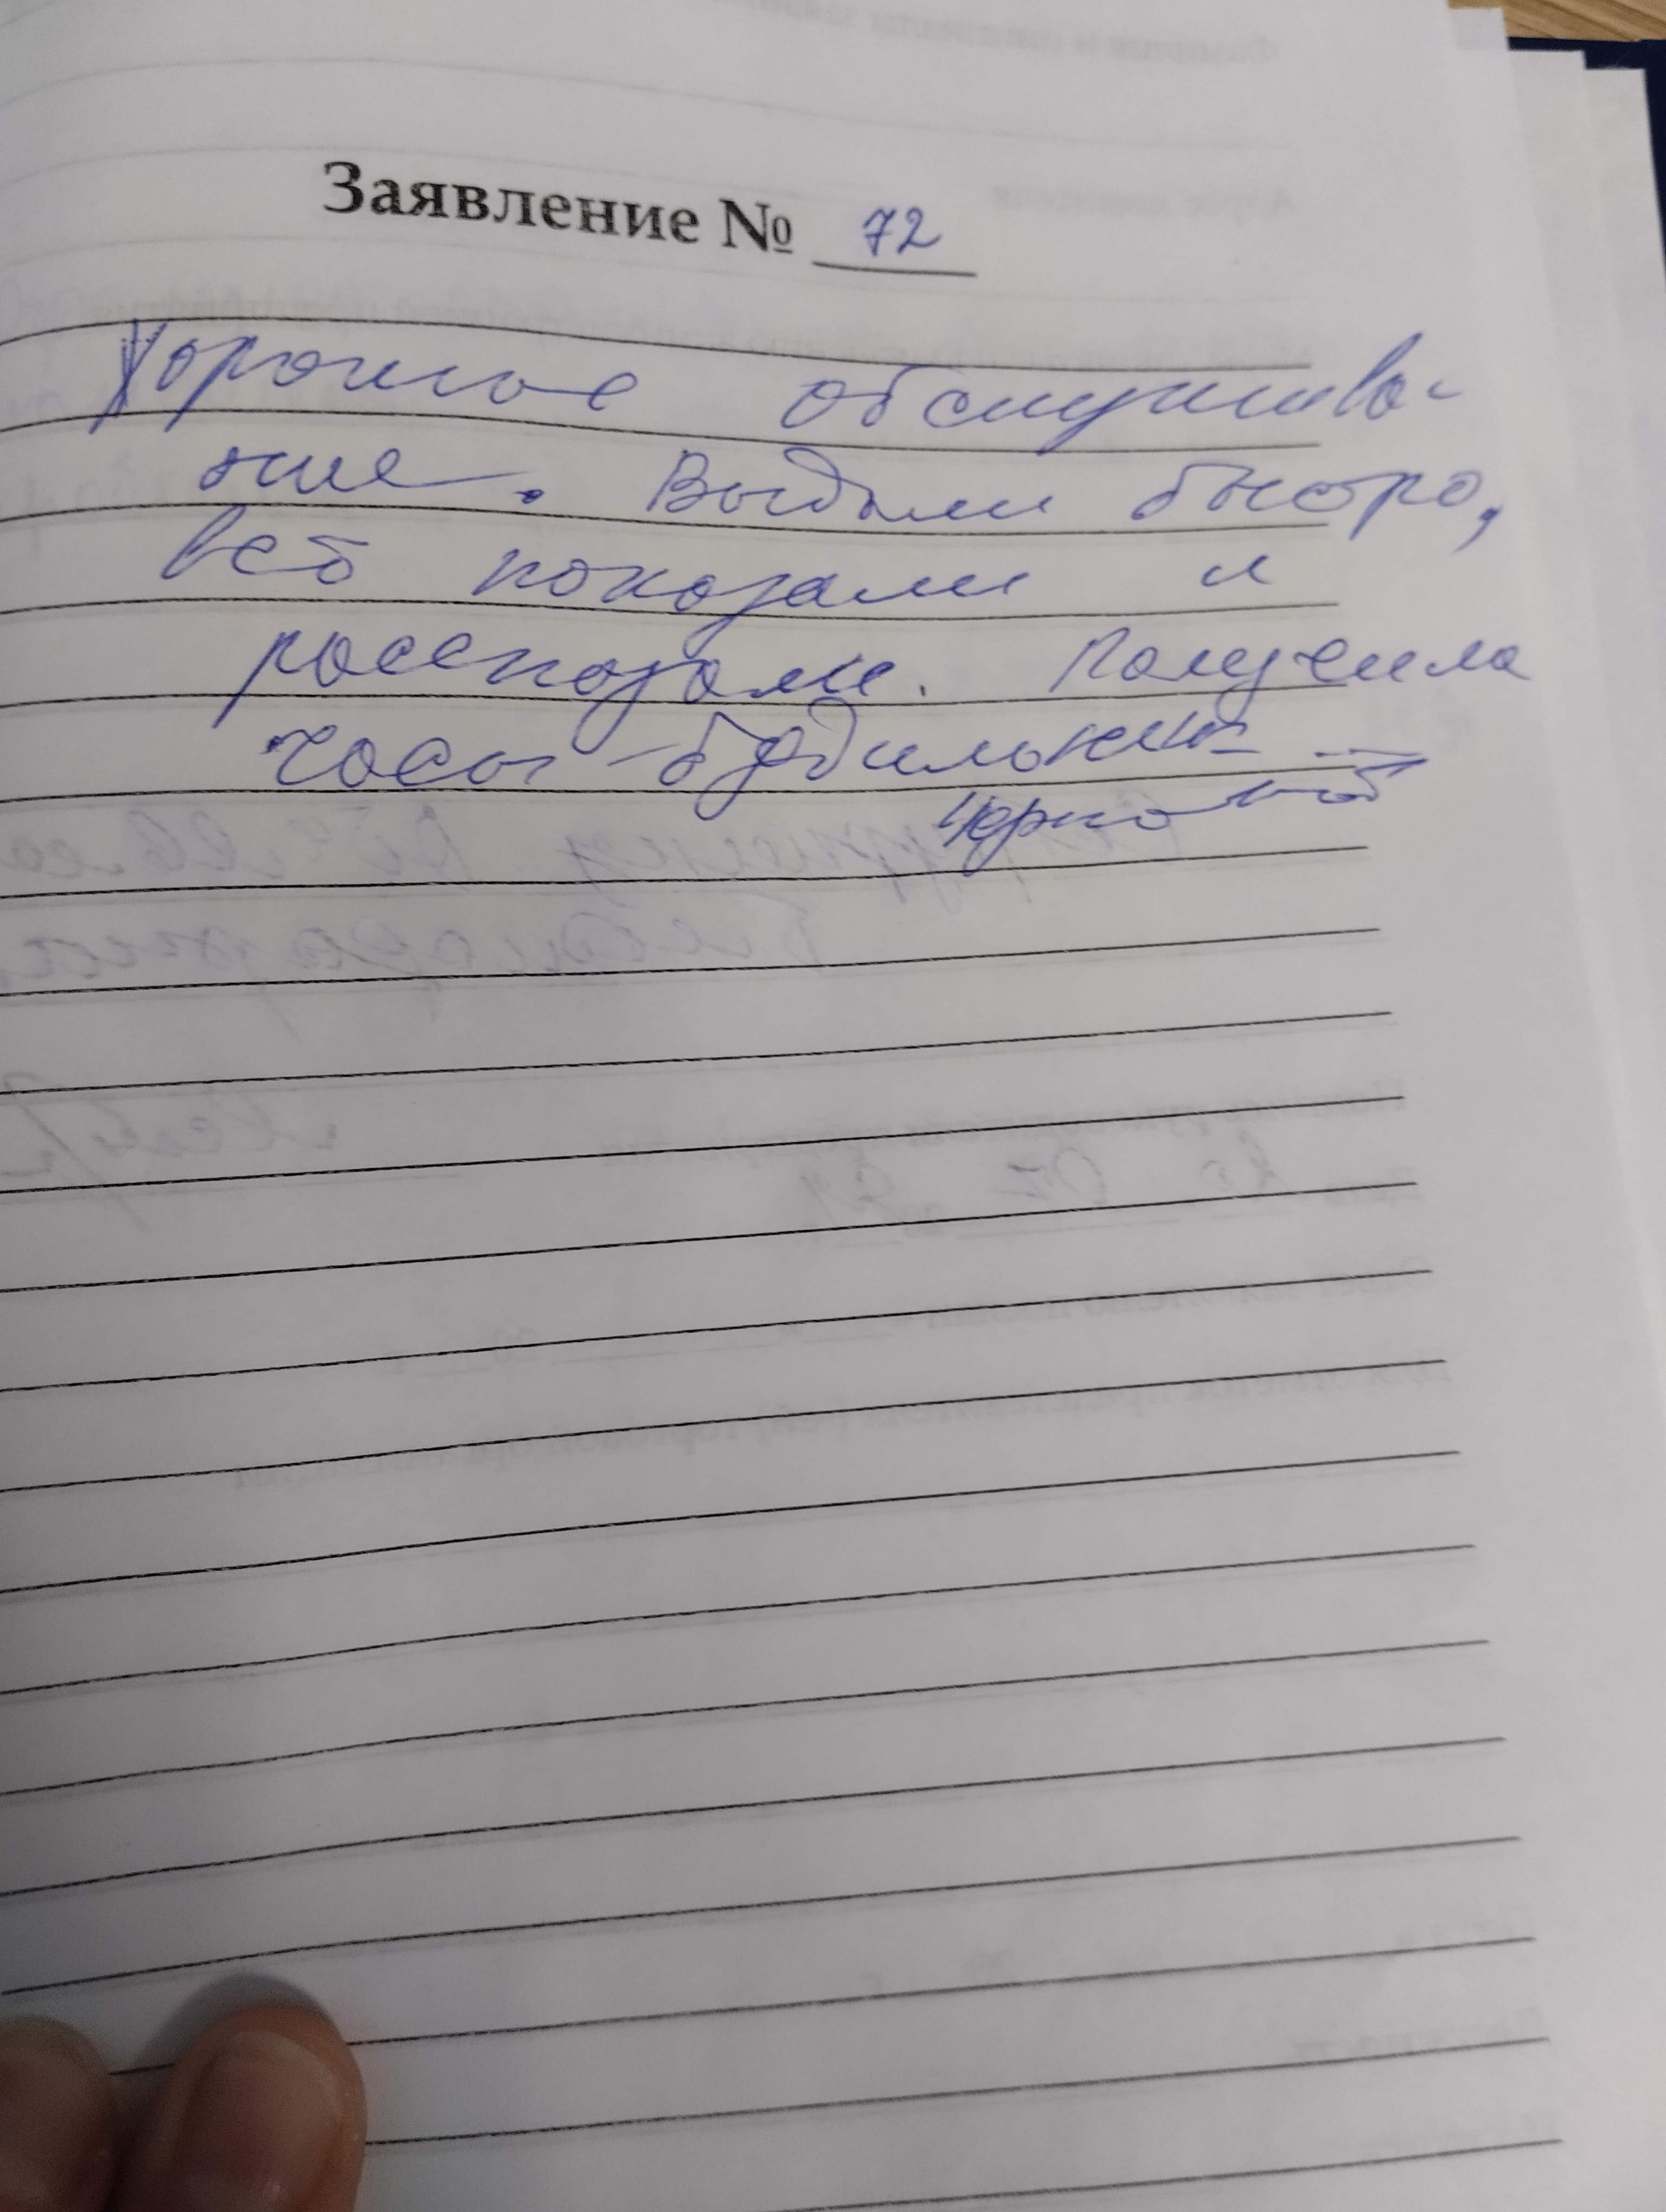 Заявление № 72
Хорошее обслужива-
ние. Выдали быстро,
всё показали и
рассказали. Получила
часы-будильник